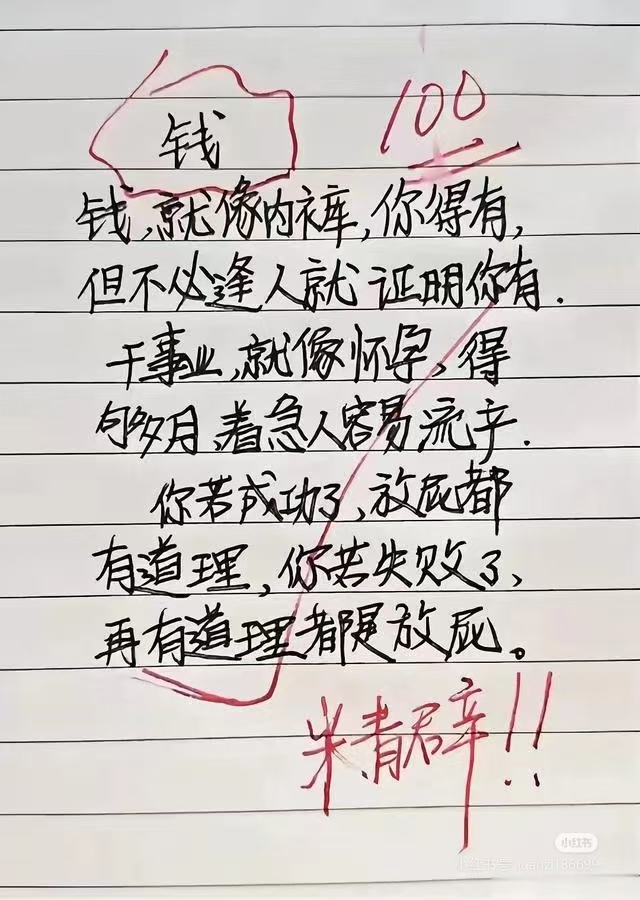 钱
100
钱,就像内裤,你得有,
但不必逢人就证明你有.
干事业,就像怀孕,得
够多月,着急人容易流产.
你若成功了,放屁都
有道理,你若失败了,
再有道理都是放屁。
精辟!!
小红书